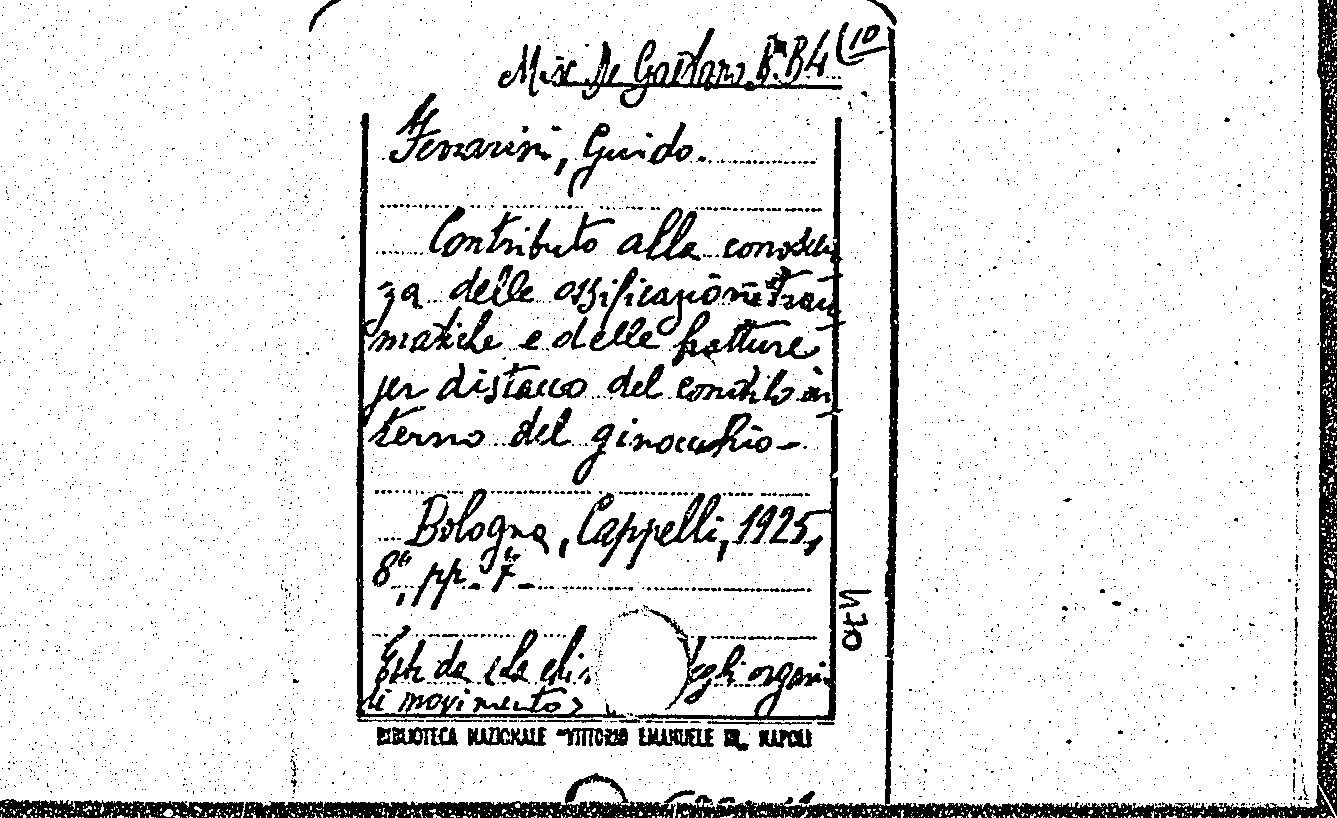 Misc. De Gaetano B. B4 (10
Ferrarini, Guido.
Contributo alla conoscen
za delle ossificazioni trau
matiche e delle fratture
per distacco del condilo in
terno del ginocchio –
Bologna, Cappelli, 1925,
8°, pp. 7 –
Estr. da «La chi degli organi
di movimento»
BIBLIOTECA NAZIONALE "VITTORIO EMANUELE III" NAPOLI